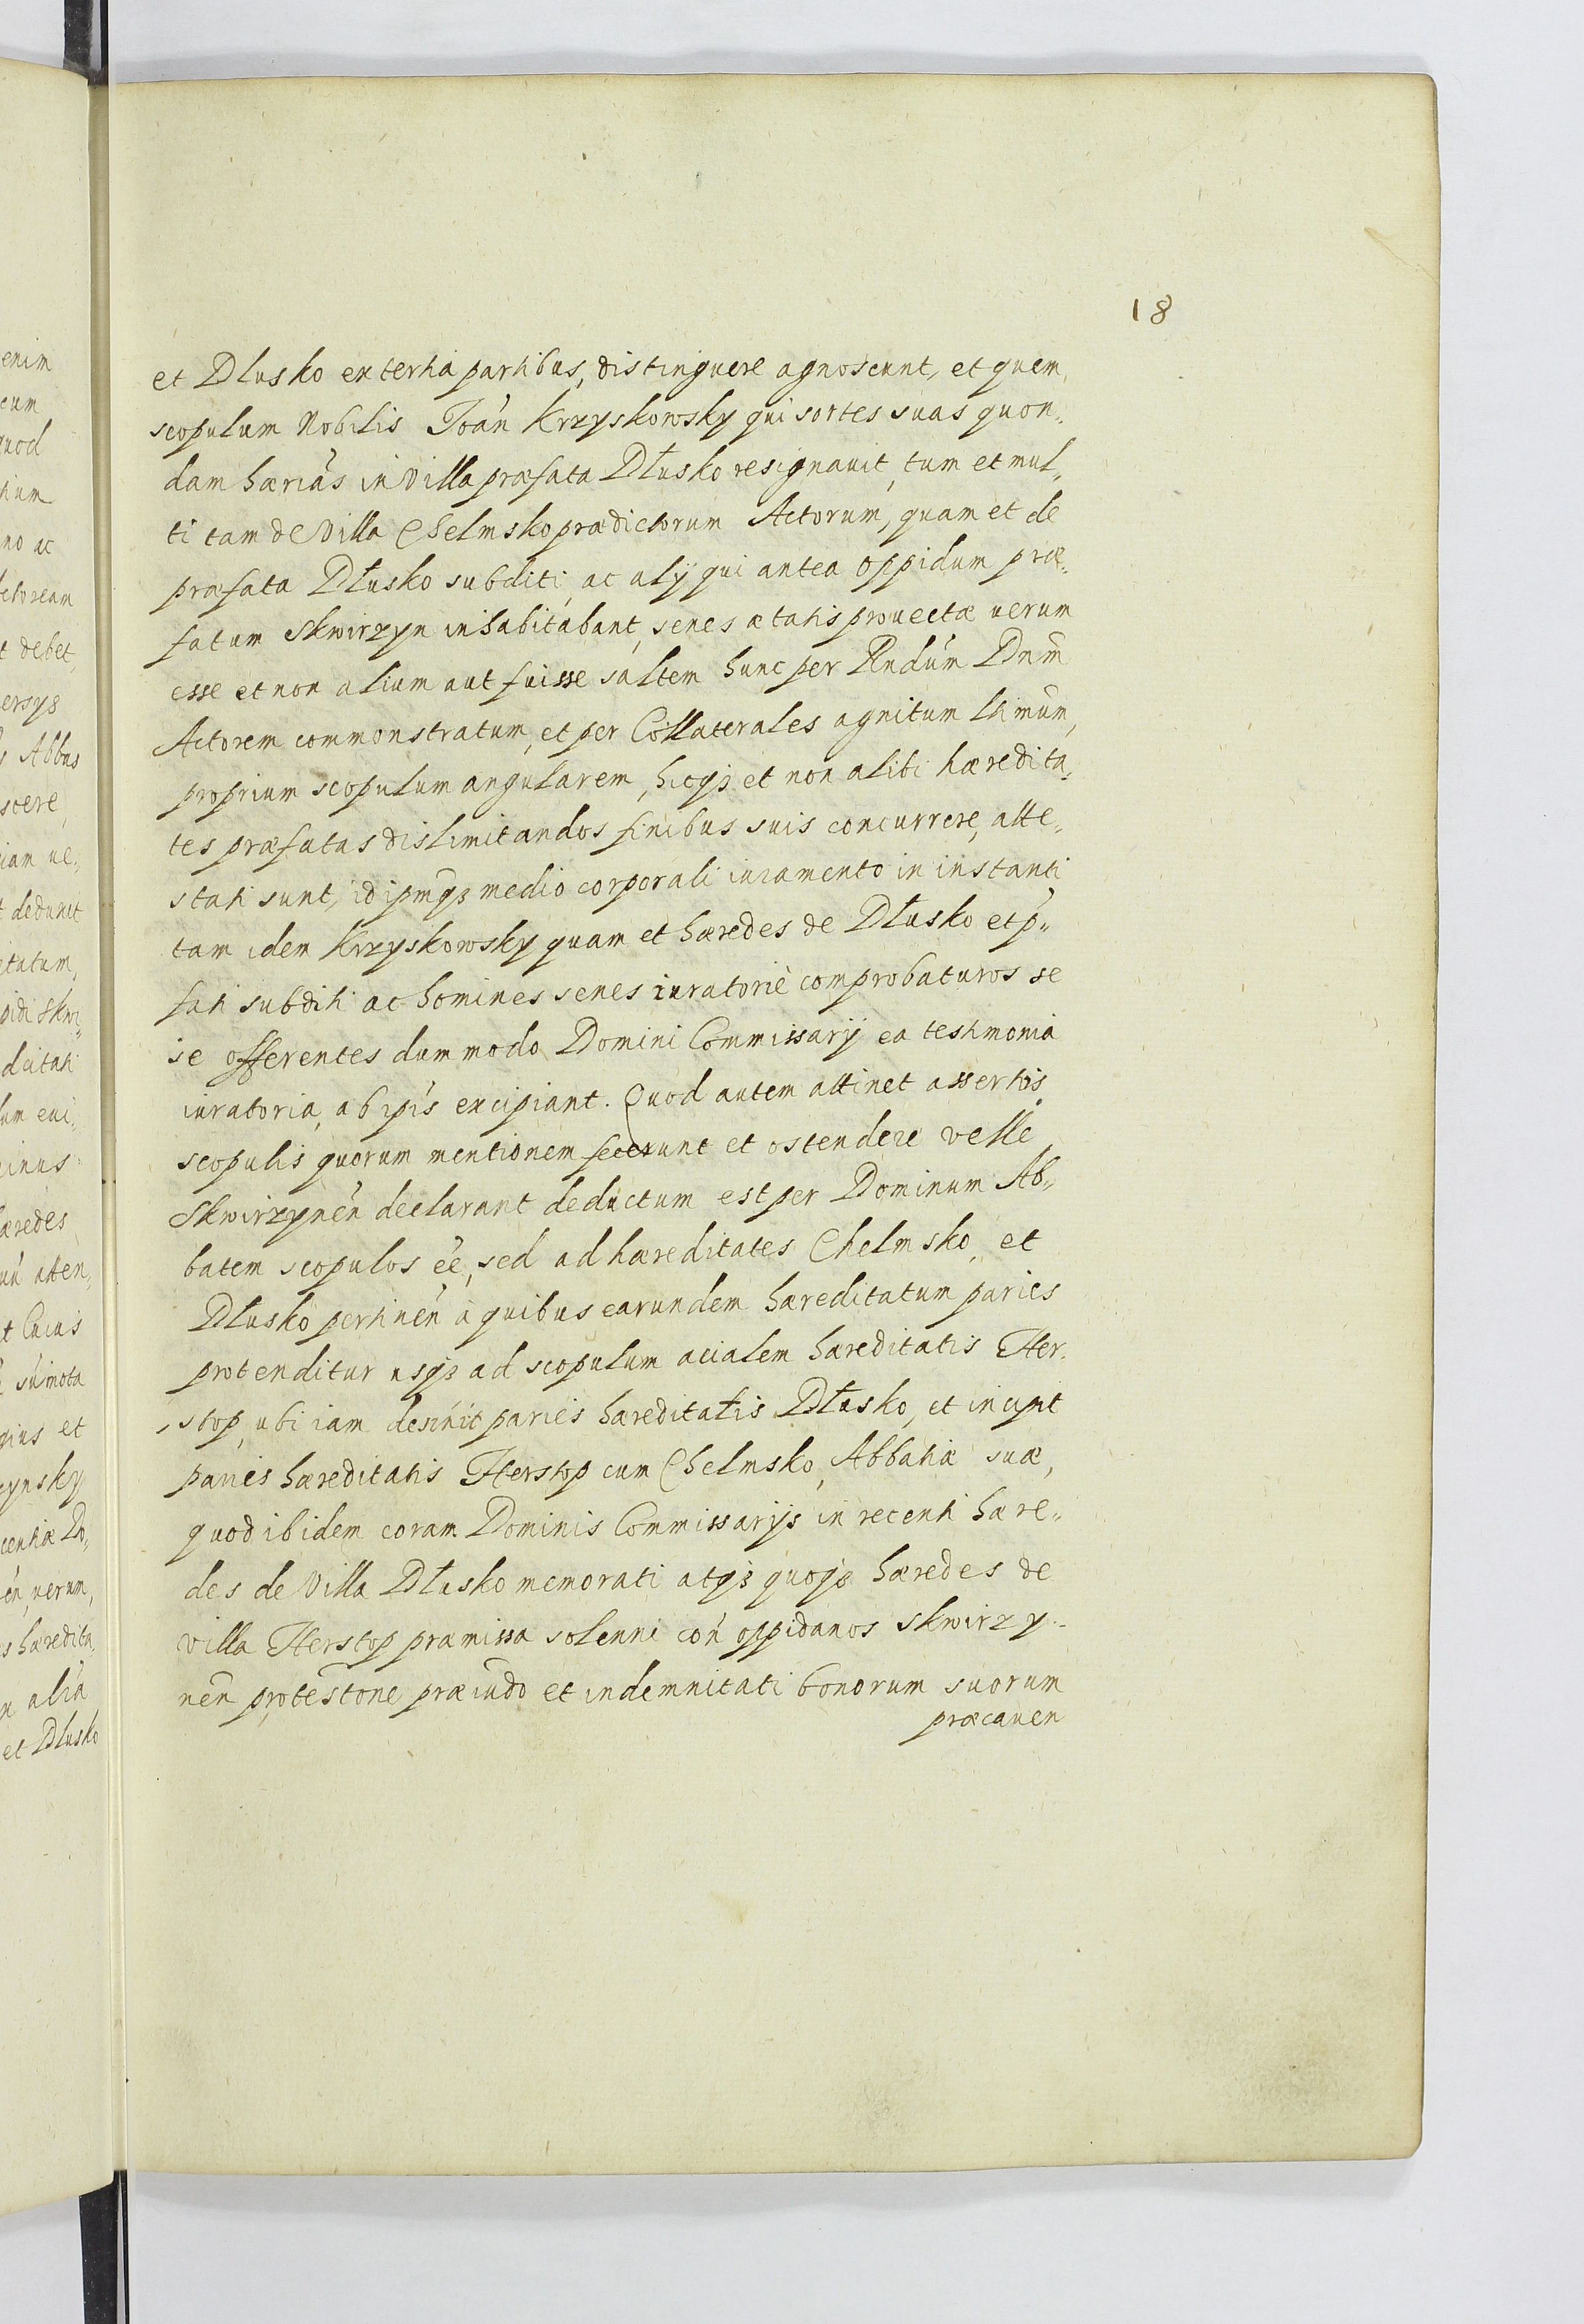 18
et Dlusko ex tertia partibus, distinguere agnoscunt, et quem
scopulum Nobilis Joãn Krzyskowsky qui sortes suas quon„
dam hæriãs in Villa præfata Dłusko resignauit, tum et mul„
ti tam de Villa Chelmsko prædictorum Actorum, quam et de
præfata Dłusko subditi, ac alÿ qui antea oppidum præ„
fatum Skwirzyn inhabitabant, senes ætatis prouectæ uerum
esse et non alium aut fuisse saltem hunc per Rndũm Dnm̃
Actorem commonstratum, et per Collaterales agnitum lt̃imũm,
proprium scopulum angularem, hicqꝫ et non alibi hæredita„
tes præfatas dislimitandos finibus suis concurrere, atte„
stati sunt, id ipm̃qꝫ medio corporali iuramento in instanti
tam idem Krzyskowsky quam et hæredes de Dłusko et p̃„
fati subditi ac homines senes iuratoriè comprobaturos se
se offerentes dummodo Domini Commissarÿ ea testimonia
iuratoria, ab ip̃is excipiant. Quod autem attinet assertis
scopulis quorum mentionem fecerunt et ostendere velle
Skwirzyneñ declarant deductum est per Dominum Ab„
batem scopulos eẽ, sed ad hæreditates Chelmsko, et
Dlusko pertineñ à quibus earundem hæreditatum paries
protenditur usqꝫ ad scopulum acialem hæreditatis Her„
stop, ubi iam desinit paries hæreditatis Dłusko, et incipit
paries hæreditatis Herstop cum Chelmsko, Abbatiæ suæ,
quod ibidem coram Dominis Commissarÿs in recenti hære„
des de Villa Dłusko memorati atqꝫ quoqꝫ hæredes de
villa Herstop præmissa solenni coñ oppidanos Skwirzy„
neñ protestõne præiudõ et indemnitati bonorum suorum
præcauen
enim
cum
quod
debet
Abbas
scere
t dedunt
hæredes
cuius
et
et Dlusko